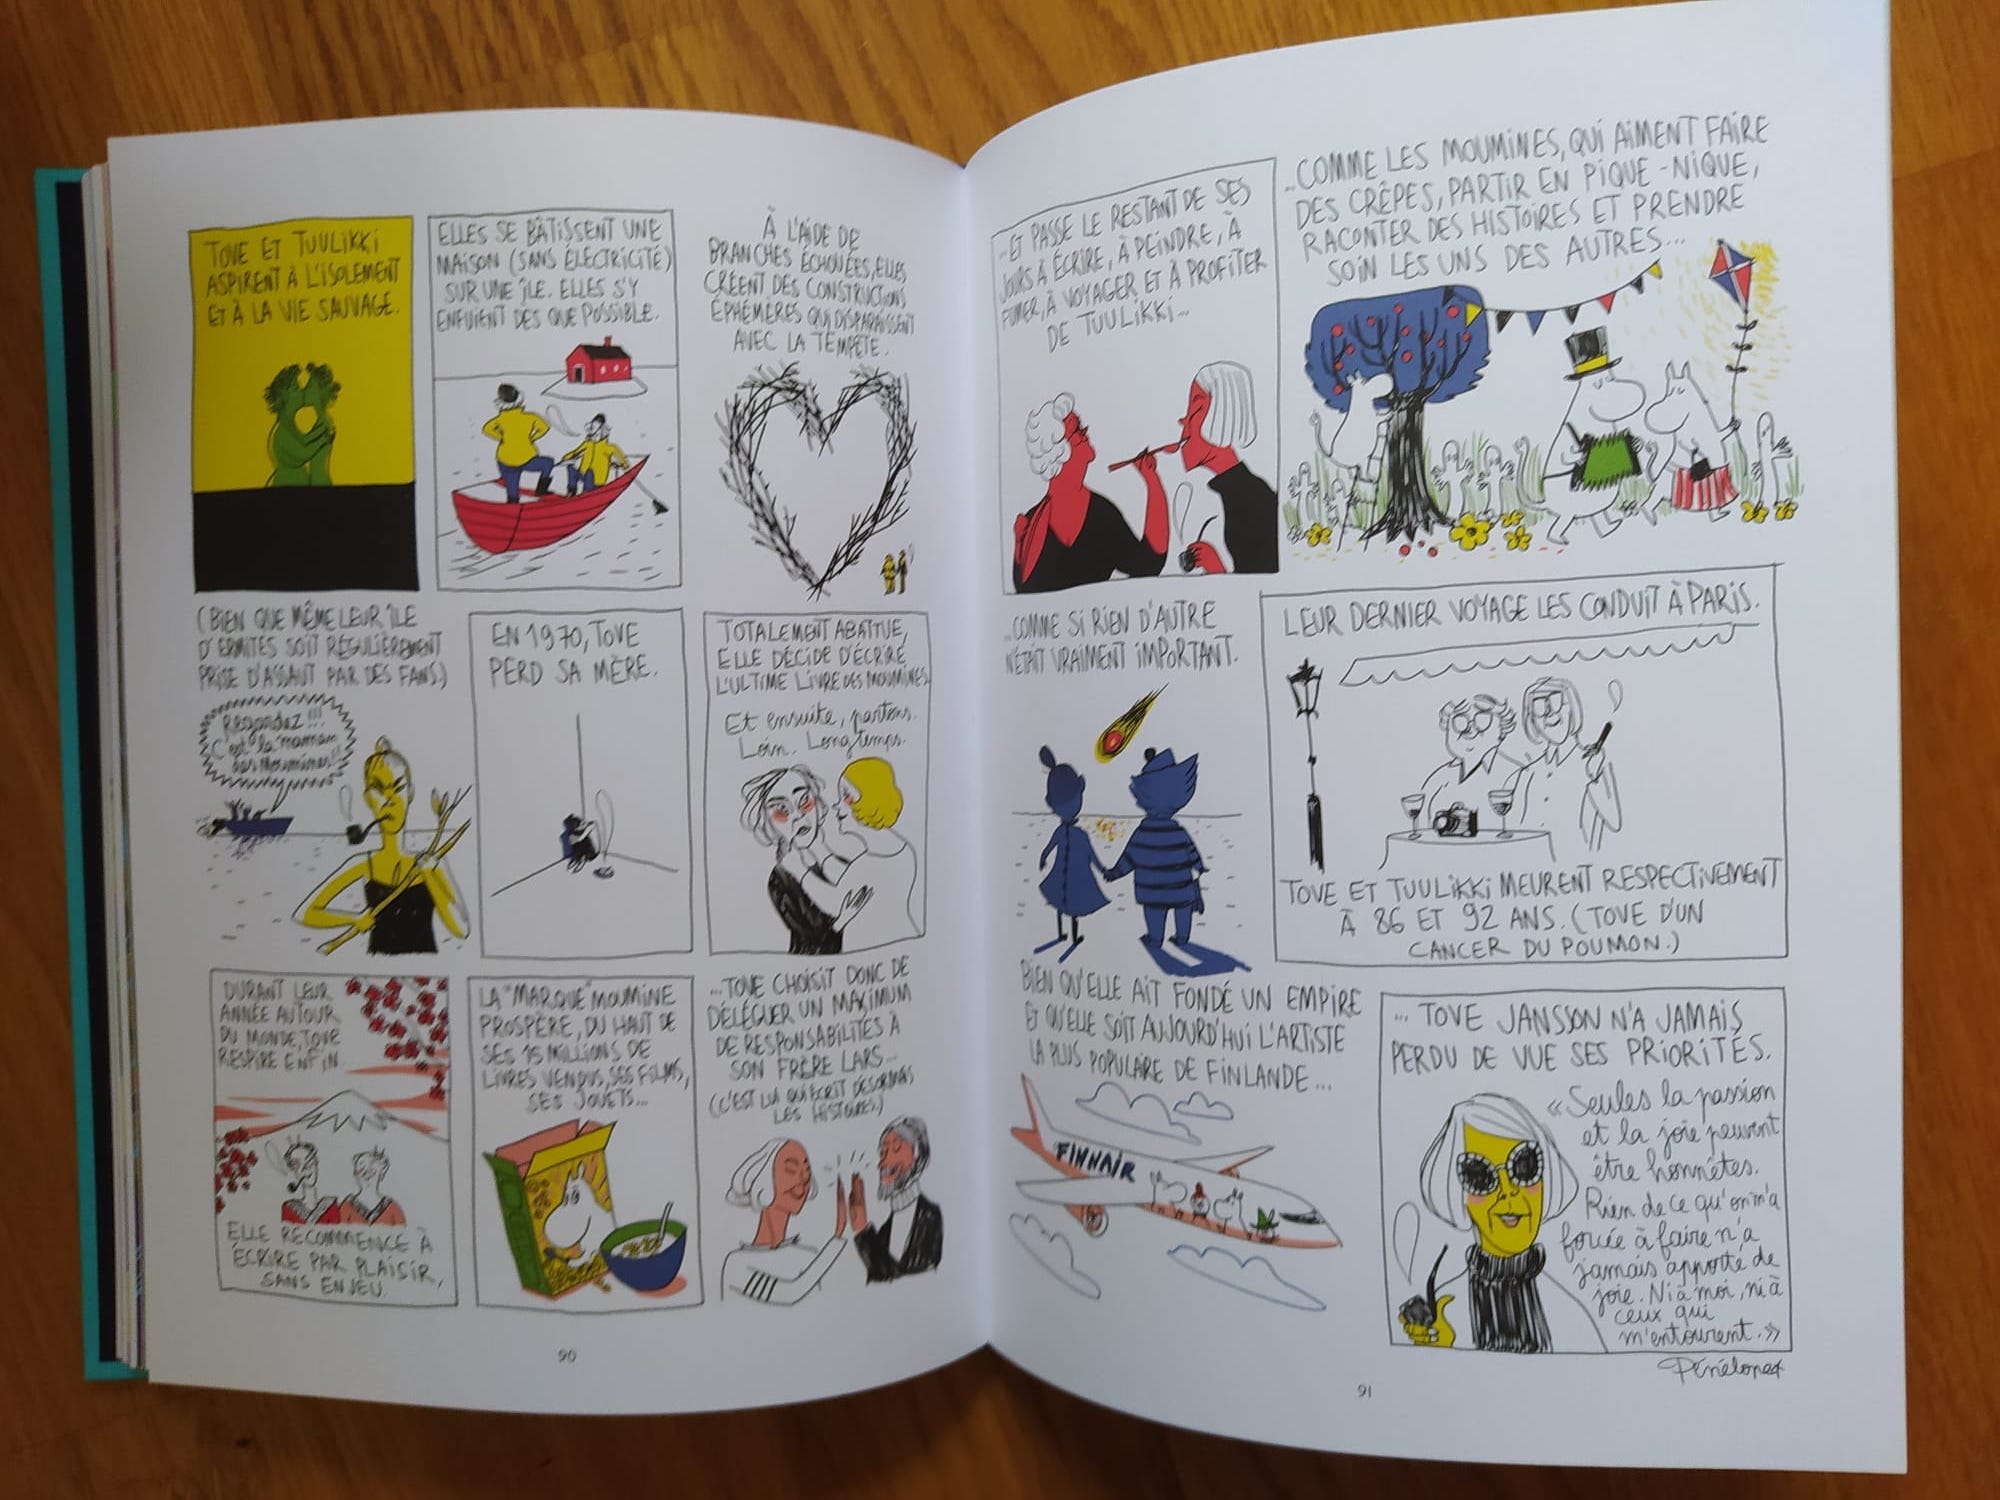 TOVE ET TUULIKKI
ASPIRENT À L'ISOLEMENT
ET À LA VIE SAUVAGE.
ELLES SE BÂTISSENT UNE
MAISON (SANS ÉLECTRICITÉ)
SUR UNE ÎLE. ELLES S'Y
ENFUIENT DÈS QUE POSSIBLE.
À L'AIDE DE
BRANCHES ÉCHOUÉES, ELLES
CRÉENT DES CONSTRUCTIONS
ÉPHÉMÈRES QUI DISPARAISSENT
AVEC LA TEMPÊTE.
(BIEN QUE MÊME LEUR ÎLE
D'ERMITES SOIT RÉGULIÈREMENT
PRISE D'ASSAUT PAR DES FANS.)
Regardez!!!
C'est la maman
des Moumines!!
EN 1970, TOVE
PERD SA MÈRE.
TOTALEMENT ABATTUE,
ELLE DÉCIDE D'ÉCRIRE
L'ULTIME LIVRE DES MOUMINES.
Et ensuite, partons.
Loin. Longtemps.
DURANT LEUR
ANNÉE AUTOUR
DU MONDE, TOVE
RESPIRE ENFIN.
ELLE RECOMMENCE À
ÉCRIRE PAR PLAISIR,
SANS ENJEU.
LA "MARQUE" MOUMINE
PROSPÈRE, DU HAUT DE
SES 15 MILLIONS DE
LIVRES VENDUS, SES FILMS,
SES JOUETS...
...TOVE CHOISIT DONC DE
DÉLÉGUER UN MAXIMUM
DE RESPONSABILITÉS À
SON FRÈRE LARS...
(C'EST LUI QUI ÉCRIT DÉSORMAIS
LES HISTOIRES.)
90
...ET PASSE LE RESTANT DE SES
JOURS À ÉCRIRE, À PEINDRE, À
FUMER, À VOYAGER ET À PROFITER
DE TUULIKKI...
...COMME LES MOUMINES, QUI AIMENT FAIRE
DES CRÊPES, PARTIR EN PIQUE-NIQUE,
RACONTER DES HISTOIRES ET PRENDRE
SOIN LES UNS DES AUTRES...
...COMME SI RIEN D'AUTRE
N'ÉTAIT VRAIMENT IMPORTANT.
LEUR DERNIER VOYAGE LES CONDUIT À PARIS.
TOVE ET TUULIKKI MEURENT RESPECTIVEMENT
À 86 ET 92 ANS. (TOVE D'UN
CANCER DU POUMON.)
BIEN QU'ELLE AIT FONDÉ UN EMPIRE
ET QU'ELLE SOIT AUJOURD'HUI L'ARTISTE
LA PLUS POPULAIRE DE FINLANDE...
FINNAIR
... TOVE JANSSON N'A JAMAIS
PERDU DE VUE SES PRIORITÉS.
«Seules la passion
et la joie peuvent
être honnêtes.
Rien de ce qu'on m'a
forcée à faire n'a
jamais apporté de
joie. Ni à moi, ni à
ceux qui
m'entourent.»
Pénélope
91